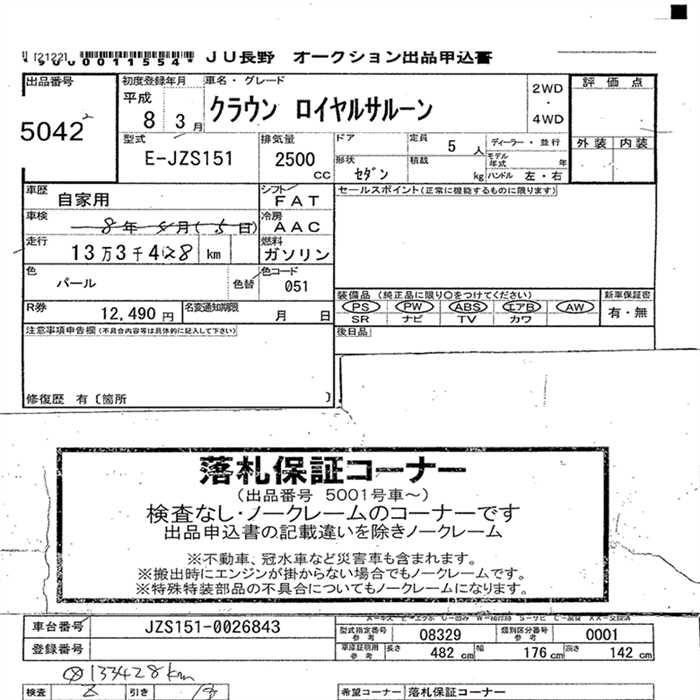 [2122] JU長野 オークション出品申込書
*9000011554*
出品番号
5042
初度登録年月
平成
8 3月
車名・グレード
クラウン ロイヤルサルーン
2WD
・
4WD
評価点
外装 内装
型式
E-JZS151
排気量
2500 cc
ドア
定員 5 人
ディーラー・並行
モデル年式 年
形状
セダン
積載 kg
ハンドル 左・右
車歴
自家用
シフト
FAT
セールスポイント(正常に機能するものに限ります)
車検
冷房
AAC
走行
13万3千428 km
燃料
ガソリン
色
パール
色替
色コード
051
R券
12,490 円
名変通知期限
月 日
装備品(純正品に限り○をつけてください)
PS PW ABS エアB AW
SR ナビ TV カワ
新車保証書
有・無
注意事項申告欄(不具合内容等は具体的に記入して下さい)
後日品
修復歴 有〔箇所 〕
落札保証コーナー
(出品番号 5001号車~)
検査なし・ノークレームのコーナーです
出品申込書の記載違いを除きノークレーム
※不動車、冠水車など災害車も含まれます。
※搬出時にエンジンが掛からない場合でもノークレームです。
※特殊特装部品の不具合についてもノークレームになります。
車台番号
JZS151-0026843
型式指定番号
参考
08329
類別区分番号
参考
0001
登録番号
車庫証明用
参考
長さ 482 cm
幅 176 cm
高さ 142 cm
133428km
検査
引き
希望コーナー 落札保証コーナー